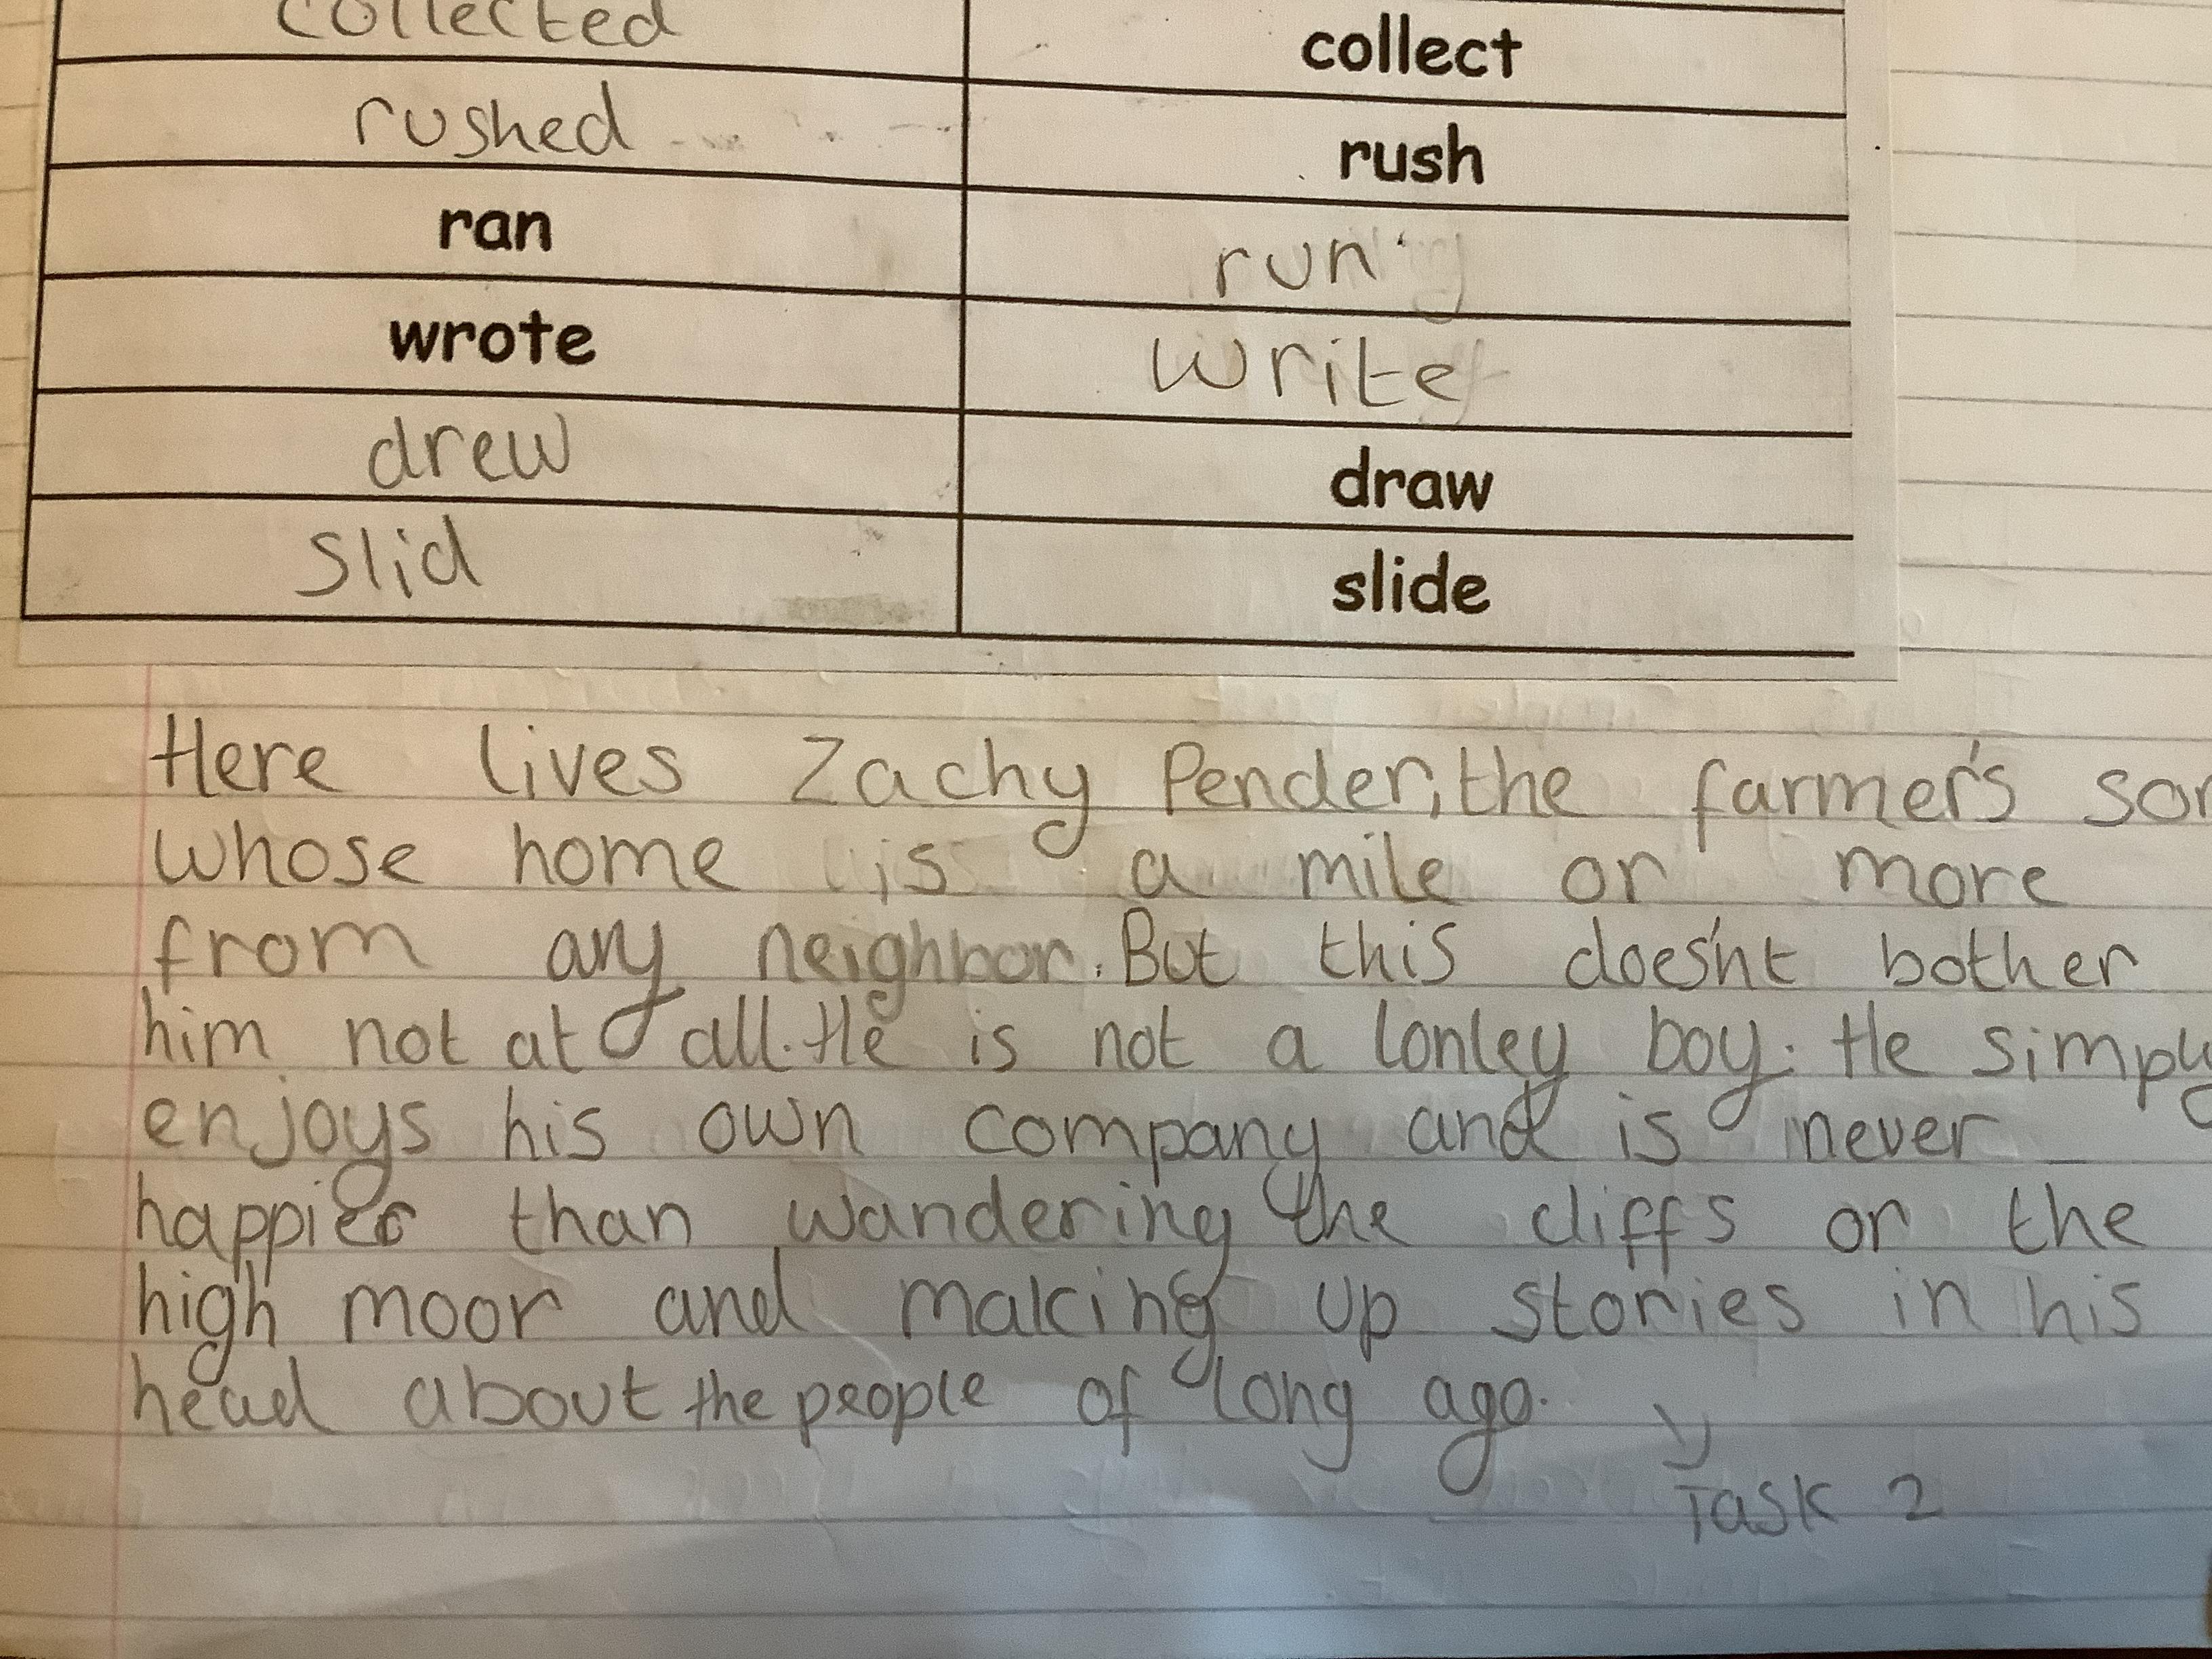 collected collect
rushed rush
ran run
wrote write
drew draw
slid slide
Here lives Zachy Pender, the farmer's son
whose home is a mile or more
from any neighbor. But this does'nt bother
him not at all. He is not a lonley boy. He simply
enjoys his own company and is never
happier than wandering the cliffs or the
high moor and making up stories in his
head about the people of long ago.
Task 2